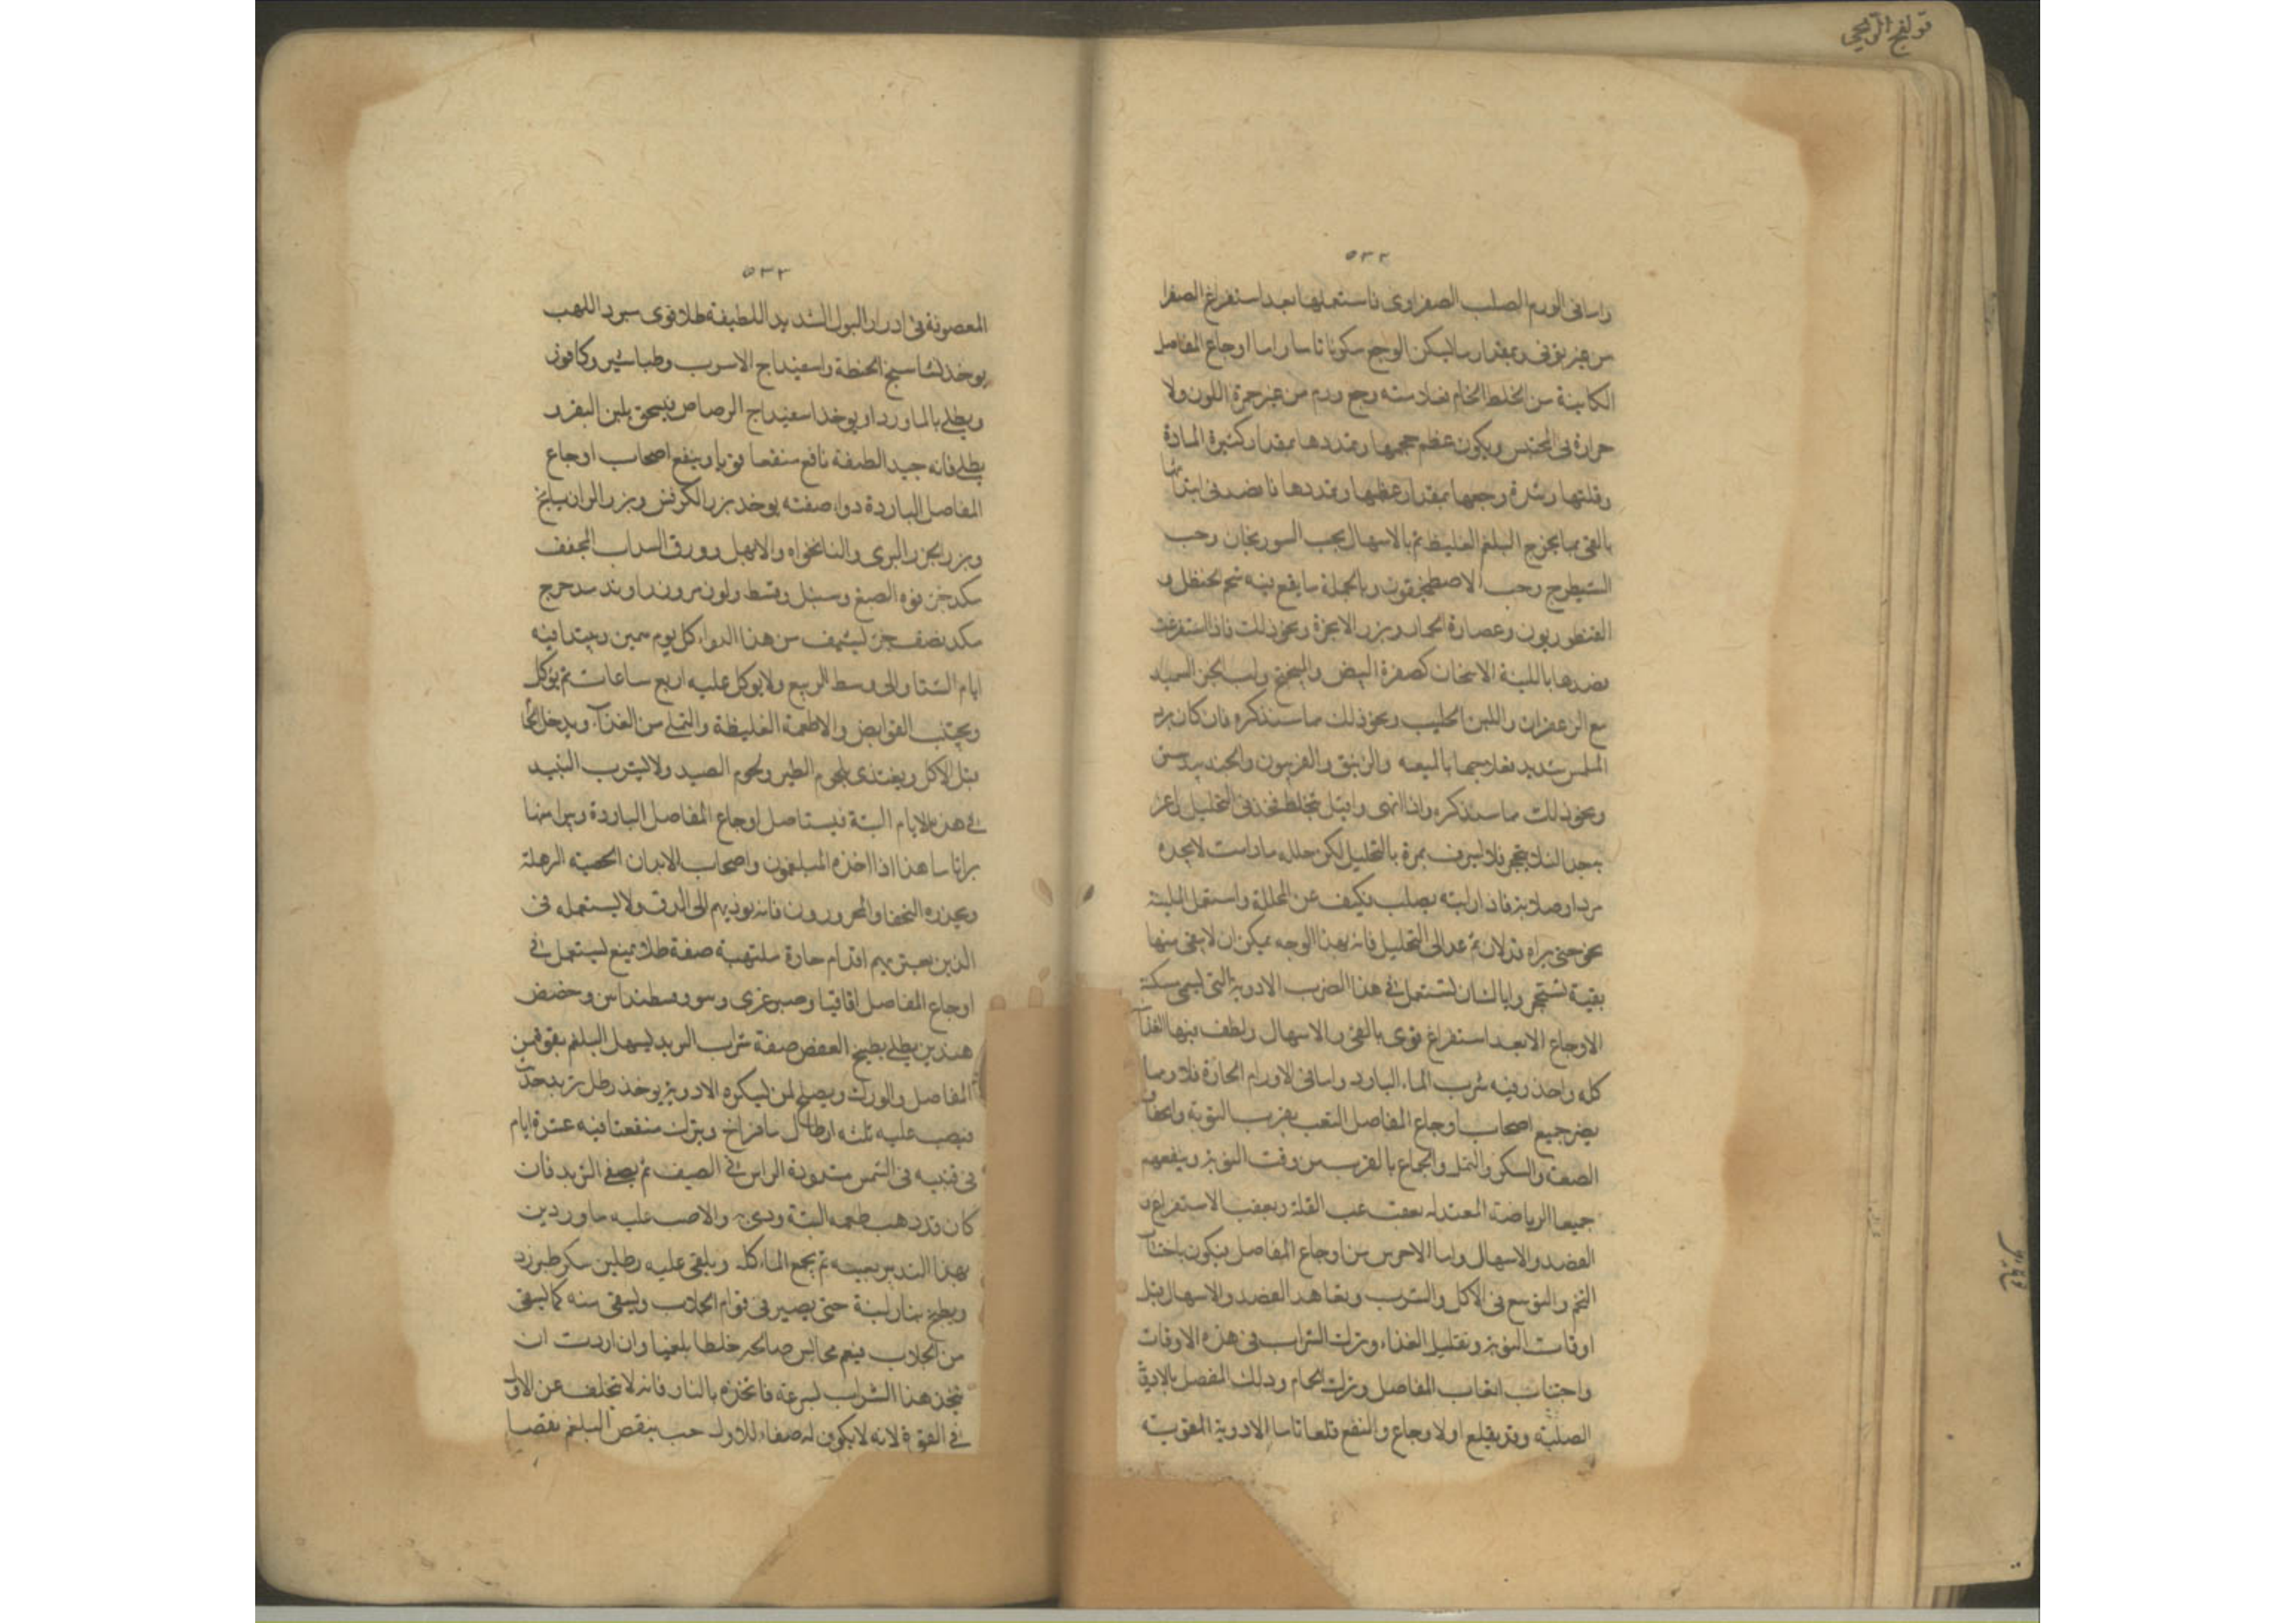 قولنج الريحي
٥٣٢
واما فى الورم الصلب الصفراوى فاستعملها بعد استفراغ الصفرا
من غير توقف وبمقدار ما يسكن الوجع سكونا تاما واما اوجاع المفاصل
الكاينة من الخلط الخام فعلامته وجع ورم من غير حمرة اللون ولا
حرارة فى المجس ويكون عظم حجمها وتمددها بمقدار كثيرة المادة
وقلتها وشدة وجعها بمقدار عظمها وتمددها فاقصد فى ابتدائها
بالقى بما يخرج البلغم الغليظ ثم بالاسهال بحب السورنجان وحب
الشيطرج وحب الاصطمخيقون وبالجملة ما يقع فيه شحم الحنظل و
القنطوريون وعصارة الحمار وبزر الانجرة ونحو ذلك فاذا استفرغت
ضمدها باللينة الاسخان كصفرة البيض والميبختج ولب الخبز السميد
مع الزعفران واللبن الحليب ونحو ذلك مما سنذكره فان كان برد
الملمس شديد فعلاجها بالميعه والزنبق والفربيون والجندبيدستر
ونحو ذلك مما سنذكره واذا انتهى وابتل الخلط فخذ فى التحليل
لئلا يتحجر فلا يسرف بمرة بالتحليل لكن حلله مادامت لا تجده
بردا وصلابة فاذا رايته يصلب فكيف عن المحللة واستعمل الملينة
نحو حتى يراه قد لان ثم عد الى التحليل فانه بهذا الوجه يمكن ان لا يبقى منها
بقية تستحجر واياك ان تستعمل فى هذا الضرب الادوية التى تسمى مسكنة
الاوجاع الا بعد استفراغ قوى بالقى والاسهال ولطف فيها الغذا
كله واحذر فيه شرب الماء البارد واما فى الاورام الحارة فلا ومما
يضر جميع اصحاب اوجاع المفاصل التعب بقرب النوبة
الصعب والسكر والتملى والجماع بالقرب من وقت النوبة وينفعهم
جميعا الرياضة المعتدلة بعقب القلة وبعقب الاستفراغ و
الفصد والاسهال واما الاحتراس من اوجاع المفاصل فيكون باجتناب
التخم والتوسع فى الاكل والشرب وتعاهد الفصد والاسهال قبل
اوقات النوبة وتقليل الغذاء وترك الشراب فى هذه الاوقات
واجتناب اتعاب المفاصل وترك الحمام ودلك المفصل بالادوية
الصلبة وقد يقلع اولا وجاع والنفع قلعا تاما الادوية المقوية
٥٣٣
المعصونة فى ادرار البول الشديد اللطيفة طلا قوى يبرد اللهب
يوخذ نشاستج الحنطة واسفيداج الاسرب وطباشير وكافور
ويطلى بالماورد او يوخذ اسفيداج الرصاص فيسحق بلبن البقر و
يطلى فانه جيد اللطيفة نافع منفعا قويا وينفع اصحاب اوجاع
المفاصل الباردة دواء صفته يوخذ بزر الكرفس وبزر الرازيانج
وبزر الجزر البرى والنانخواه والابهل وورق السداب المجفف
مكد جزء فوه الصبغ وسنبل وقسط ولوز مر وزراوند مدحرج
مكد نصف جزء ليستف من هذا الدواء كل يوم ويبتدا فيه
ايام الشتا والى وسط الربيع ولا يوكل عليه اربع ساعات ثم يوكل
ويجتنب القوابض والاطعمة الغليظة والتملى من الغذآ ويدخل الحمام
قبل الاكل ويغتذى بلحوم الطير ولحوم الصيد ولا يشرب النبيذ
فى هذه الايام البتة فيستاصل اوجاع المفاصل الباردة ويبرا منها
براتاما هذا اذا اخذه المبلغمون واصحاب الابدان الخصبة الرهلة
ويحذره النحفا والمحرورون فانه يوذيهم الى الدق ولا يستعمله فى
الذين يعتريهم اقدام حارة ملتهبة صفة طلا يمنع يستعمل فى
اوجاع المفاصل اقاقيا وصبر غرى وحضض
هندى يطلى بطبيخ العفص صفة شراب التربد يسهل البلغم
المفاصل والورك ويصلح لمن يكره الادوية يوخذ رطل تربد
فيصب عليه ثلثه ارطال ما قراح ويترك منقعا فيه عشرة ايام
فى قنينه فى الشمس مشدودة الراس فى الصيف ثم يصفى التربد فان
كان قد ذهب طعمه البتة ودى به والا صب عليه ما وردين
بهذا التدبير بعينه ثم يجمع الماء كله ويلقى عليه رطلين سكر طبرزد
ويطبخ بنار لينة حتى يصير فى قوام الجلاب ويسقى منه كما يسقى
من الجلاب فيقم مجالس صالحه خلطا بلغميا وان اردت ان
يتخذ هذا الشراب لسرعة فاتخذه بالنار فانه لا يتخلف عن الاول
فى القوة لانه لا يكون له صفاء للاول حب ينقص البلغم نقصا